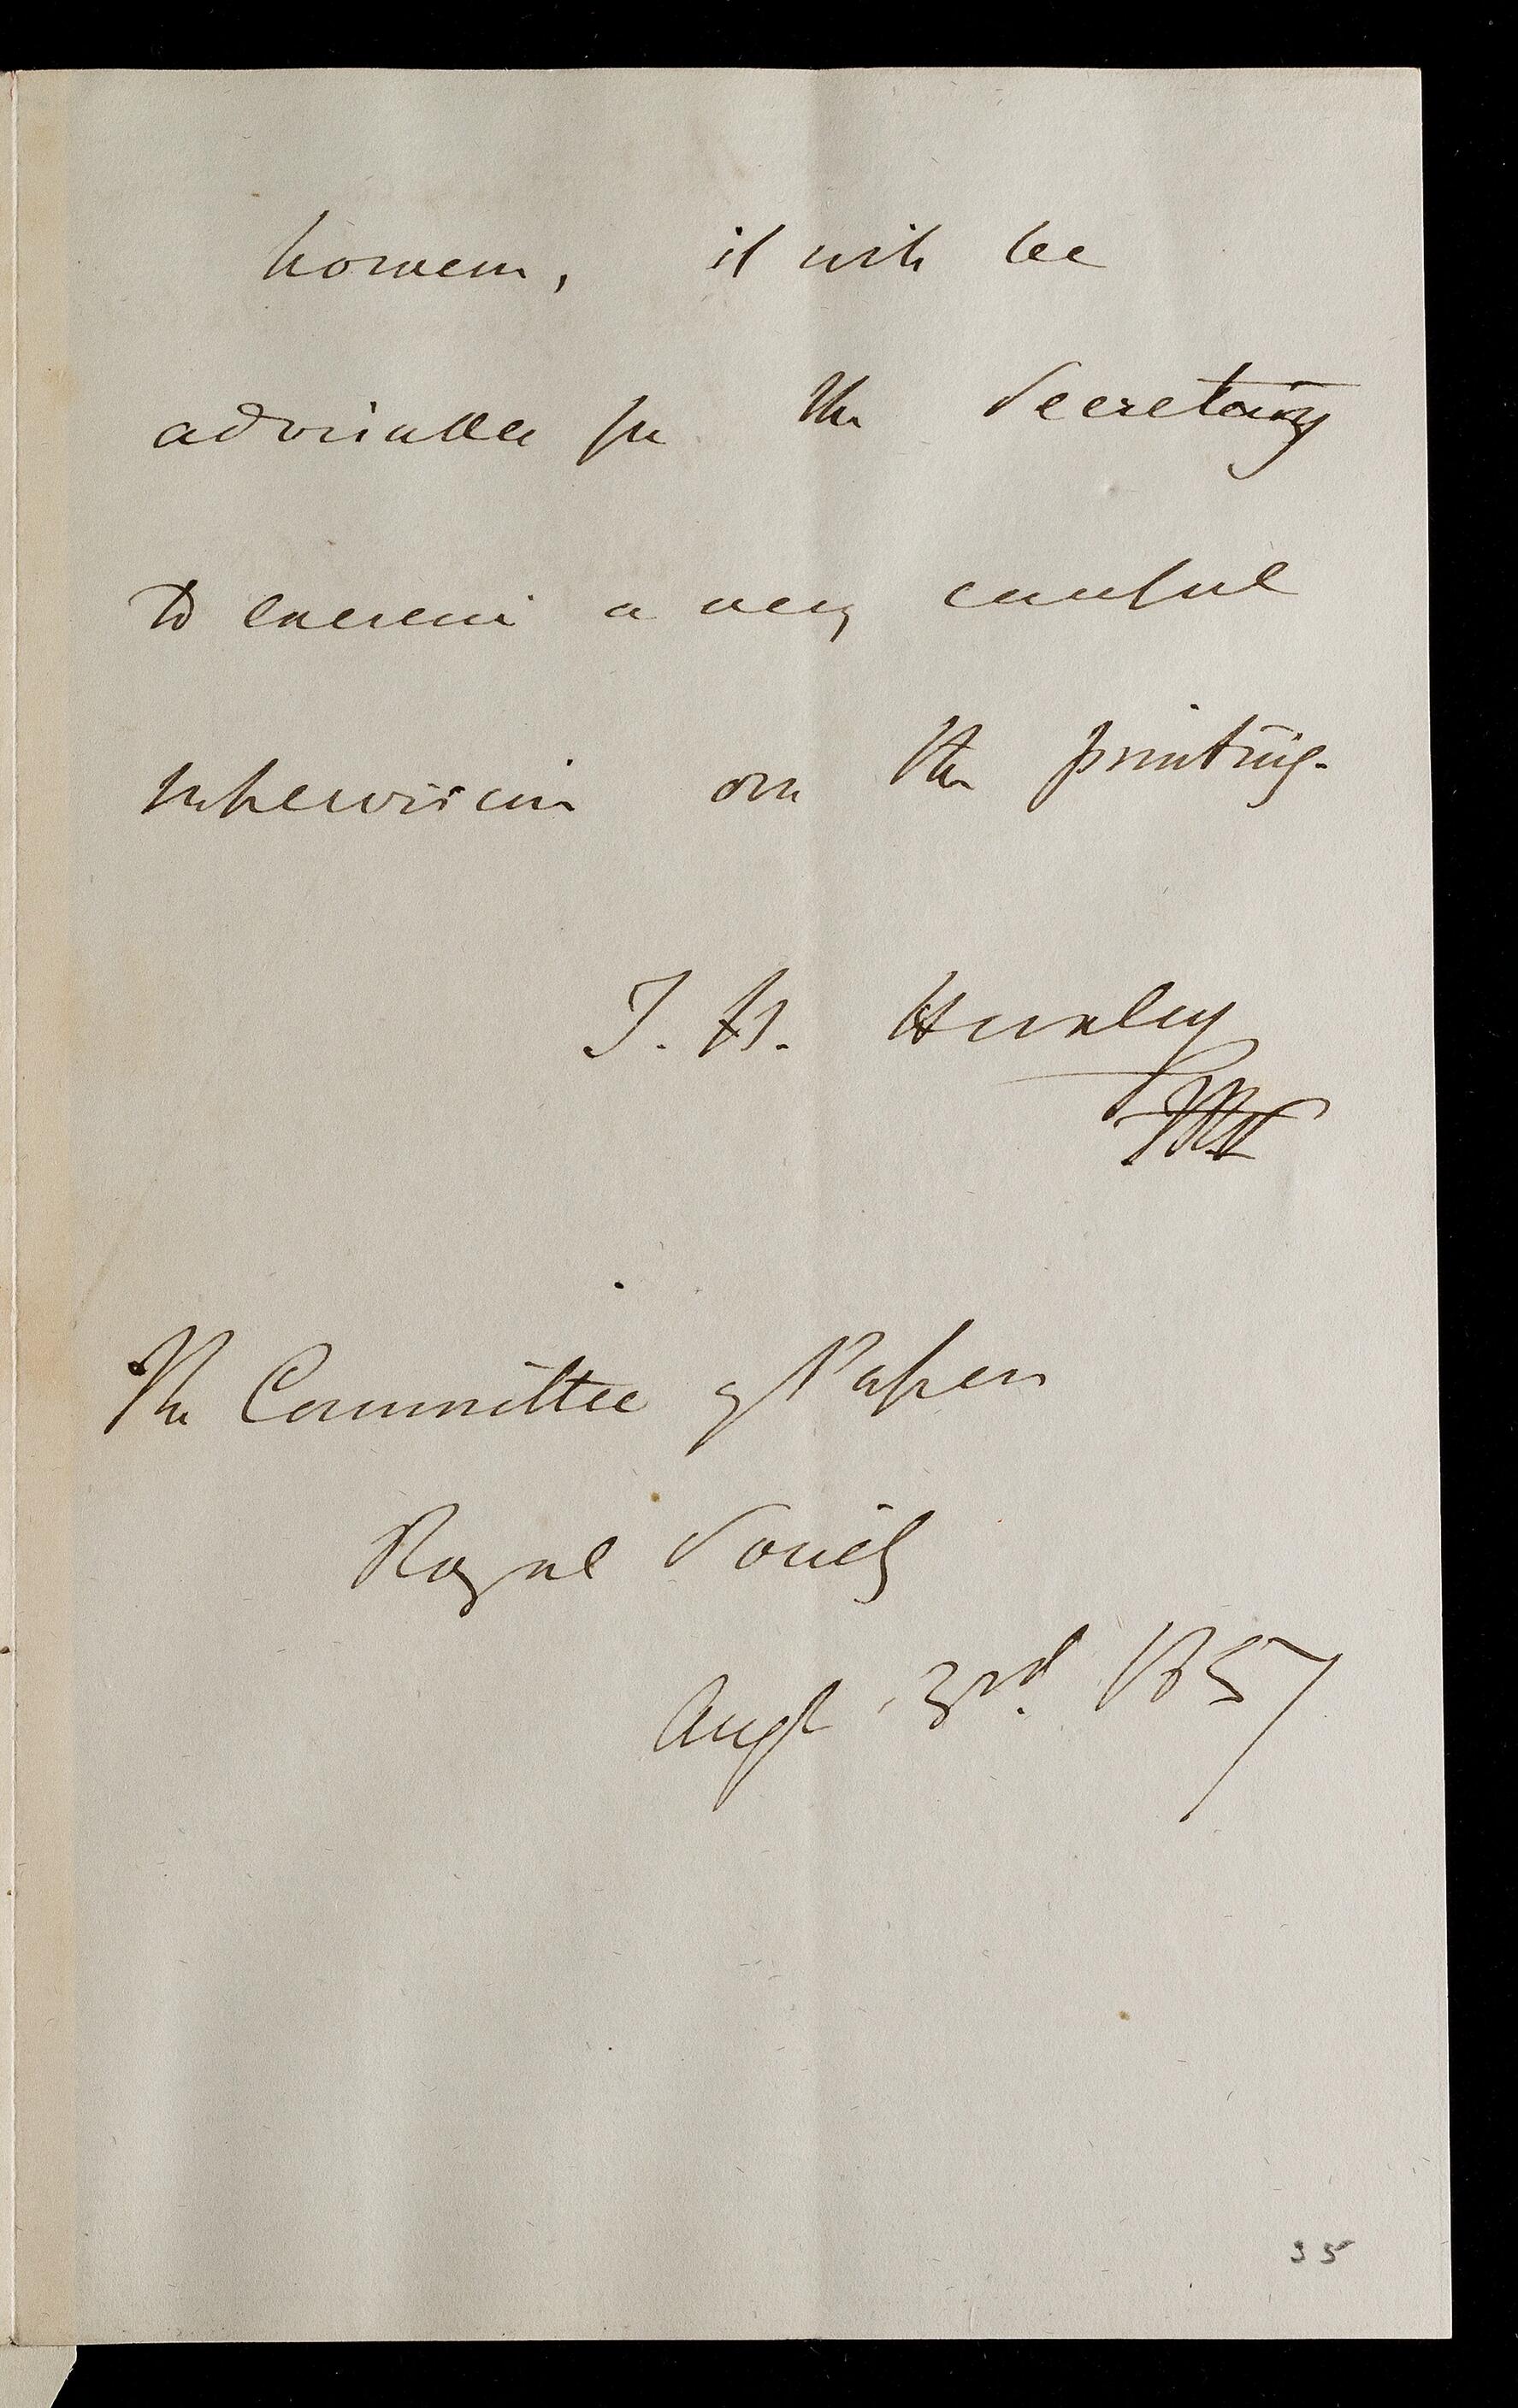 however, it will be
advisable for the Secretary
to exercise a very careful
supervision over the printing.
T. H. Huxley
The Committee of Papers
Royal Society
Augt 3rd. 1857
35